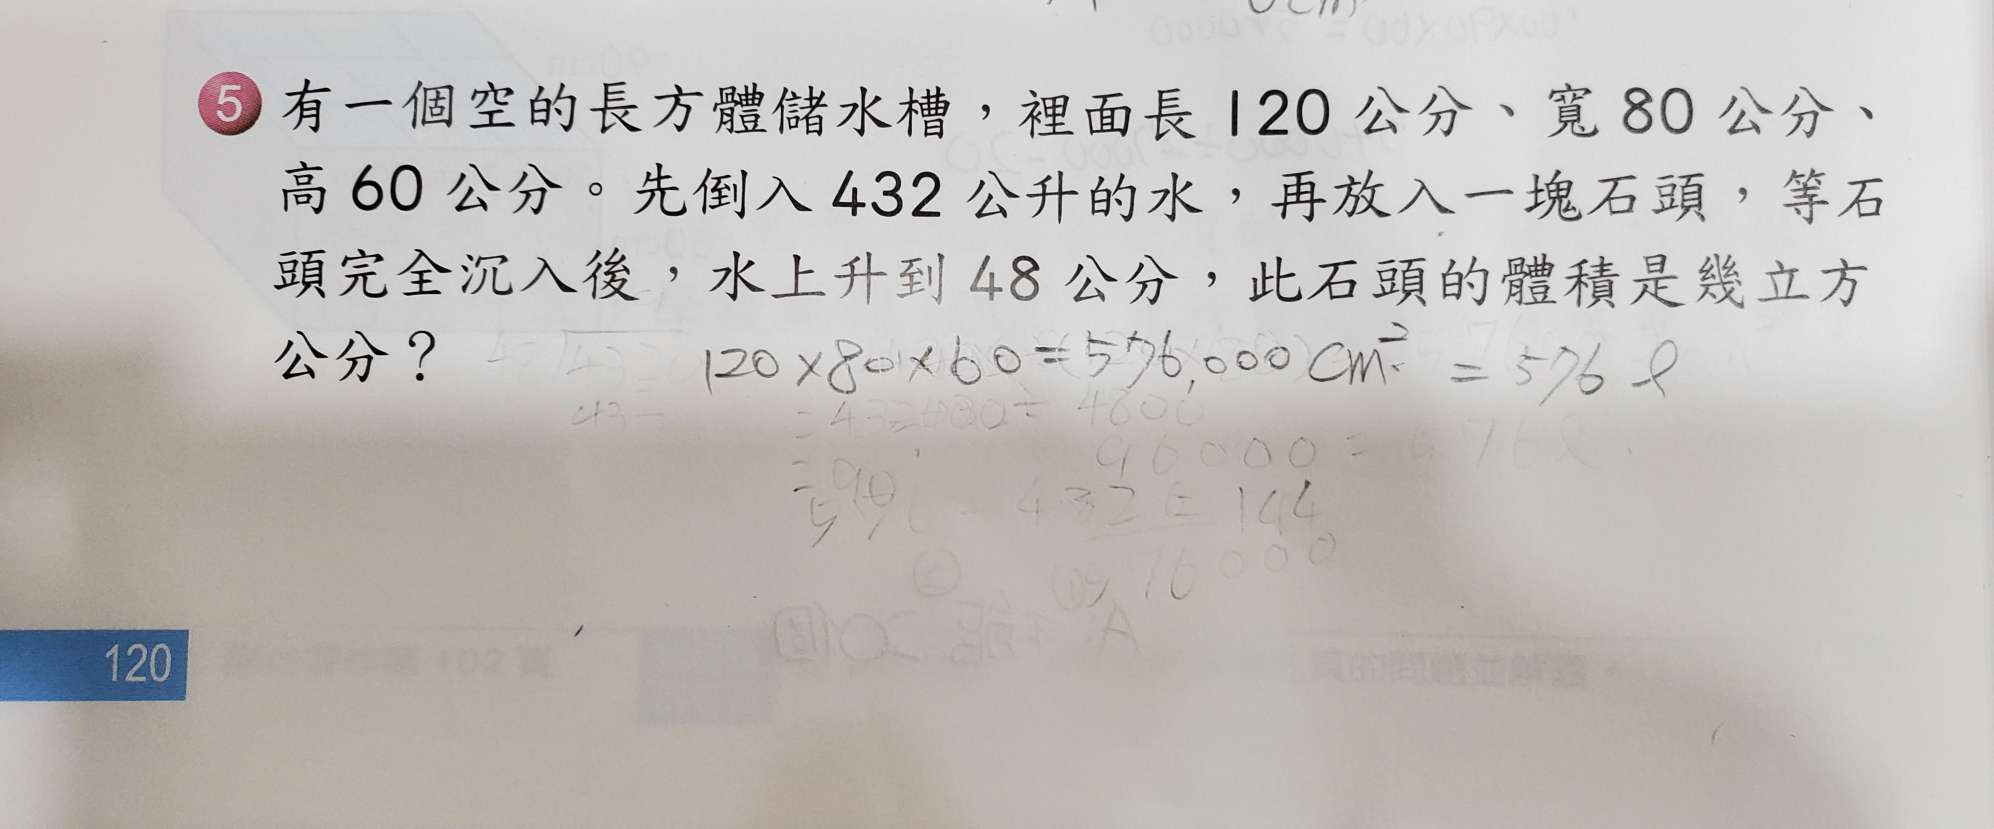 5 有一個空的長方體儲水槽，裡面長 120 公分、寬 80 公分、
高 60 公分。先倒入 432 公升的水，再放入一塊石頭，等石
頭完全沉入後，水上升到 48 公分，此石頭的體積是幾立方
公分？ 120×80×60=576,000 cm³ = 576 ℓ
96000 =
432 = 144
16000
120